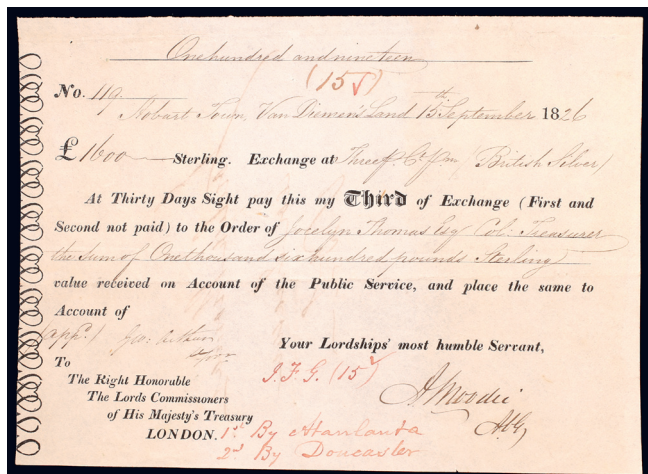 One hundred and nineteen
(15
No. 119
Hobart Town, Van Diemen's Land 15th September 1826
£1600 Sterling. Exchange at Three p Ct pm (British Silver)
At Thirty Days Sight pay this my Third of Exchange (First and
Second not paid) to the Order of Jocelyn Thomas Esq Col: Treasurer
the Sum of One thousand six hundred pounds Sterling
value received on Account of the Public Service, and place the same to
Account of
Geo: Arthur
Your Lordships' most humble Servant,
To
The Right Honorable
J.F.G. (15
The Lords Commissioners
A Moodie
of His Majesty's Treasury
LONDON.
1st By
2d By Doncaster